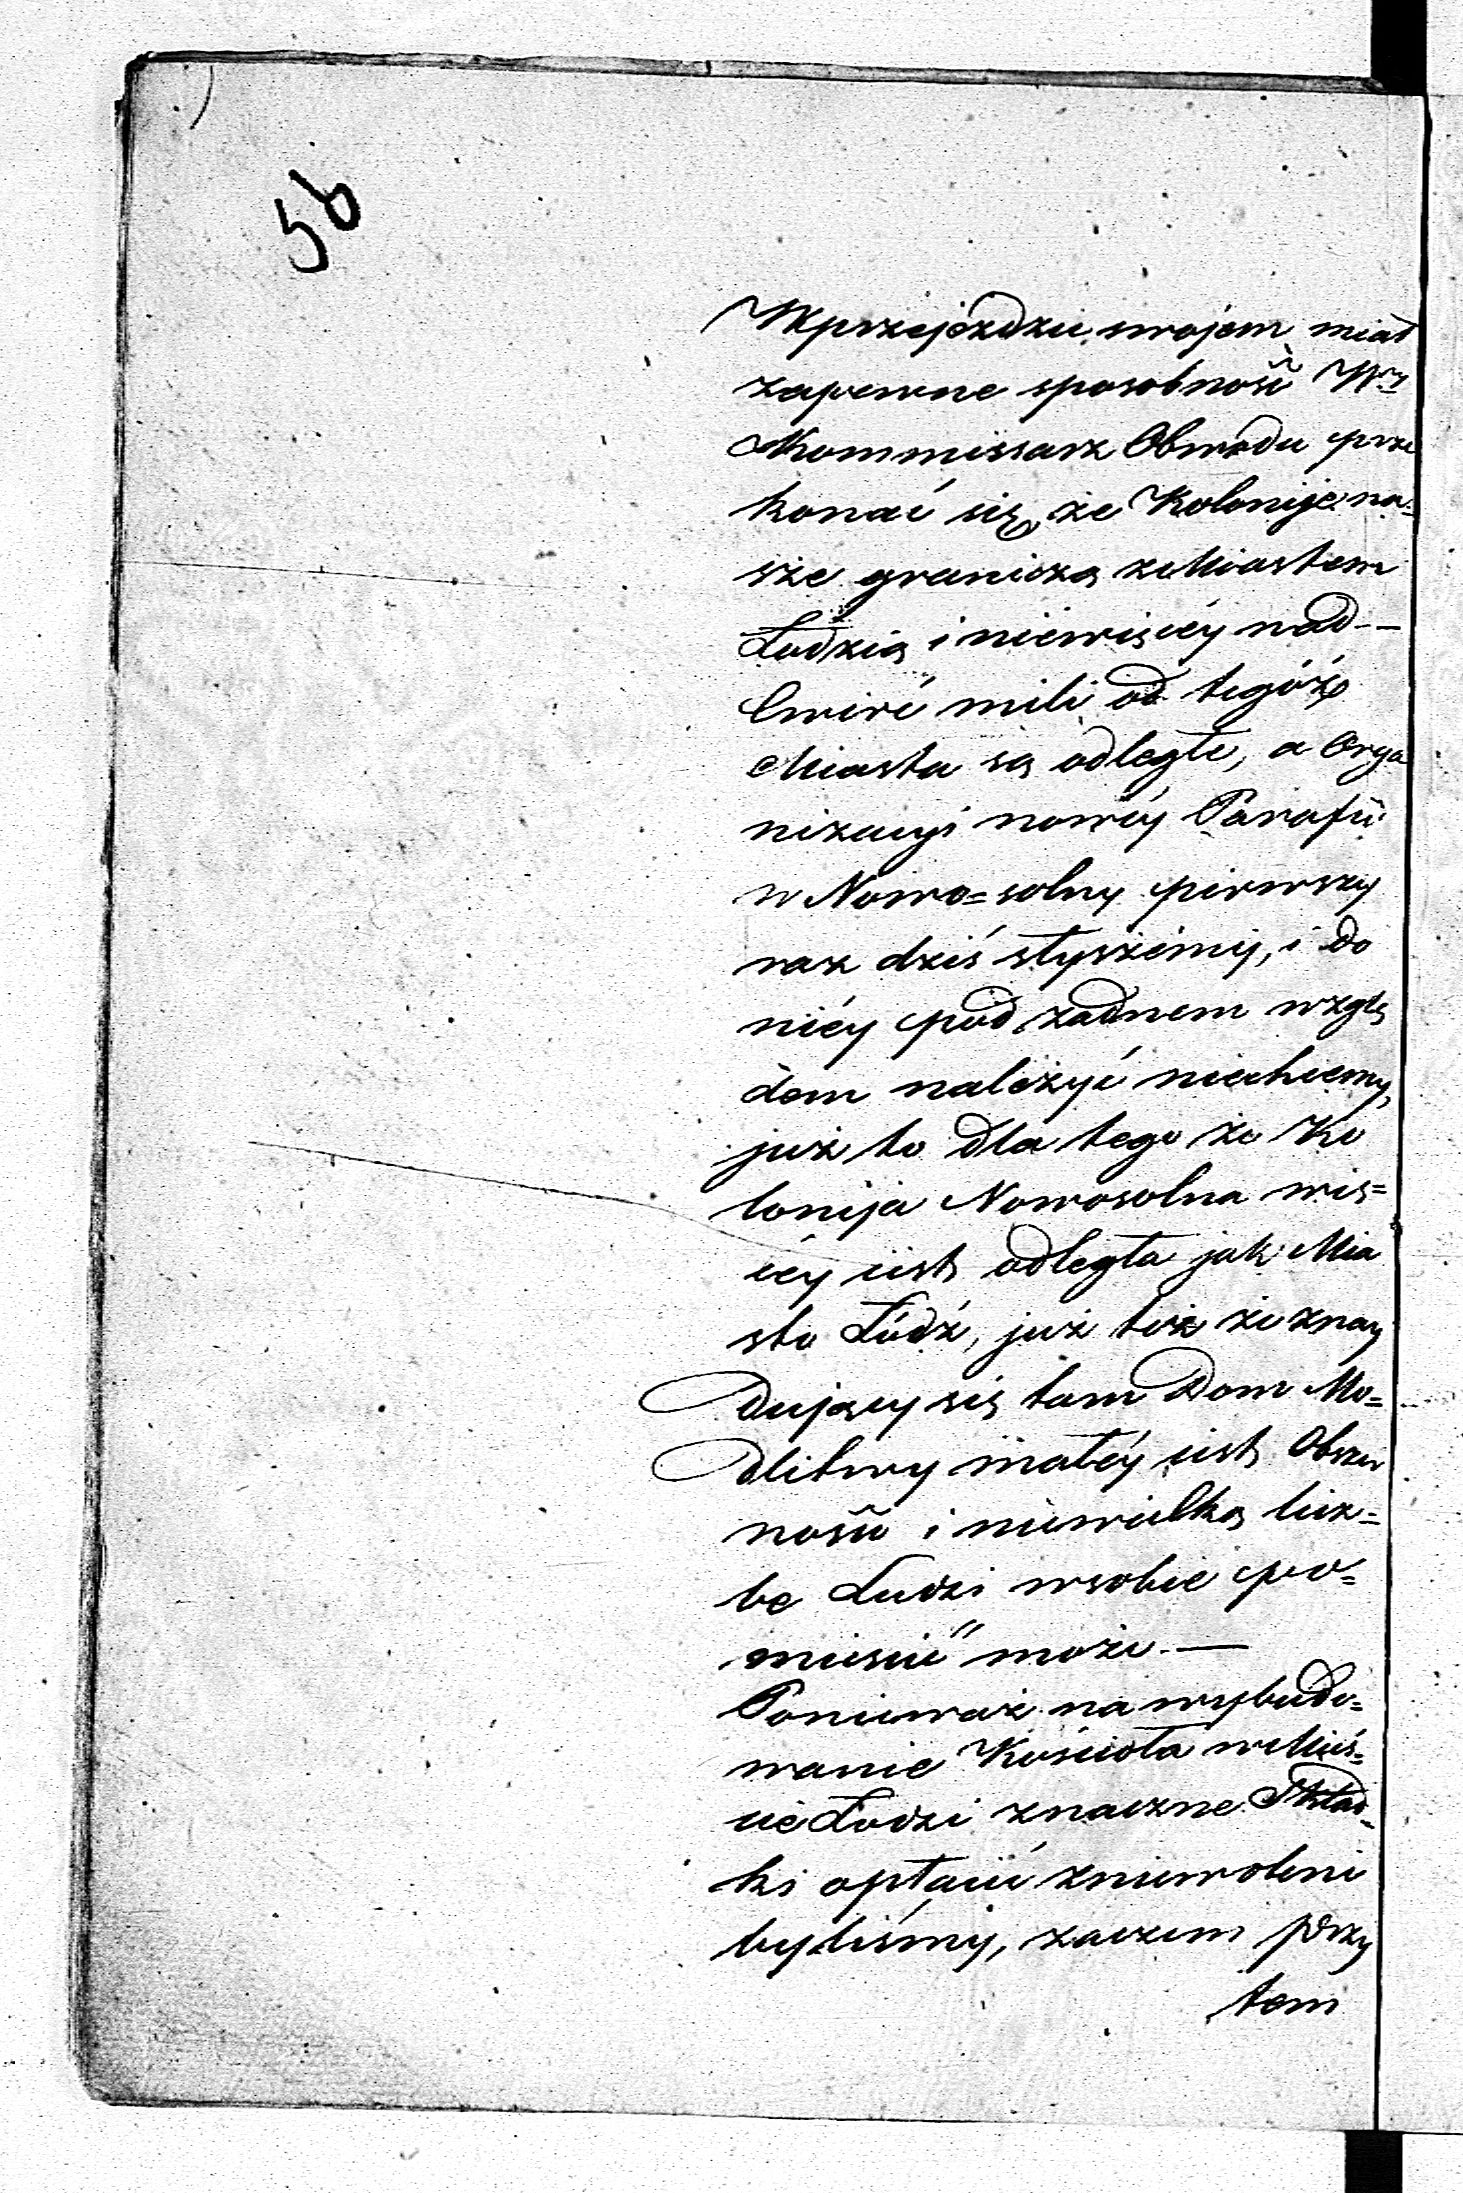 56
W przejeżdzie swojem miał
zapewne sposobność Wny
Kommissarz Obwodu prze
konać się, że Kolonije na=
sze graniczą z Miastem
Łodzią i niewięcéy nad—
Cwierć mili od tegóż
Miasta są odległe, a Orga
nizacyi nowéy Parafii
w Nowo=solny pierwszy
raz dziś słyszémy, i do
niéy pod żadnem wzglę
dem należyć niechcemy,
już to dla tego że Ko
lonija Nowosolna wię=
céy iest odległa jak Mia
sto Łódź, już też że znay
dujący się tam Dom Mo=
dlitwy małéy iest Obszer
ności i niewielką licz=
bę Ludzi w sobie po=
mieścić może.—
Ponieważ na wybudo=
wanie Kościoła w Mieś=
cie Łodzi znaczne Skład=
ki opłacić zniewoleni
byliśmy, zaczem przy
tem